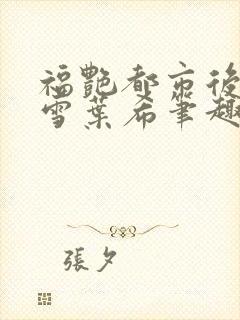 福艷都市後
雪葉希筆趣
張夕